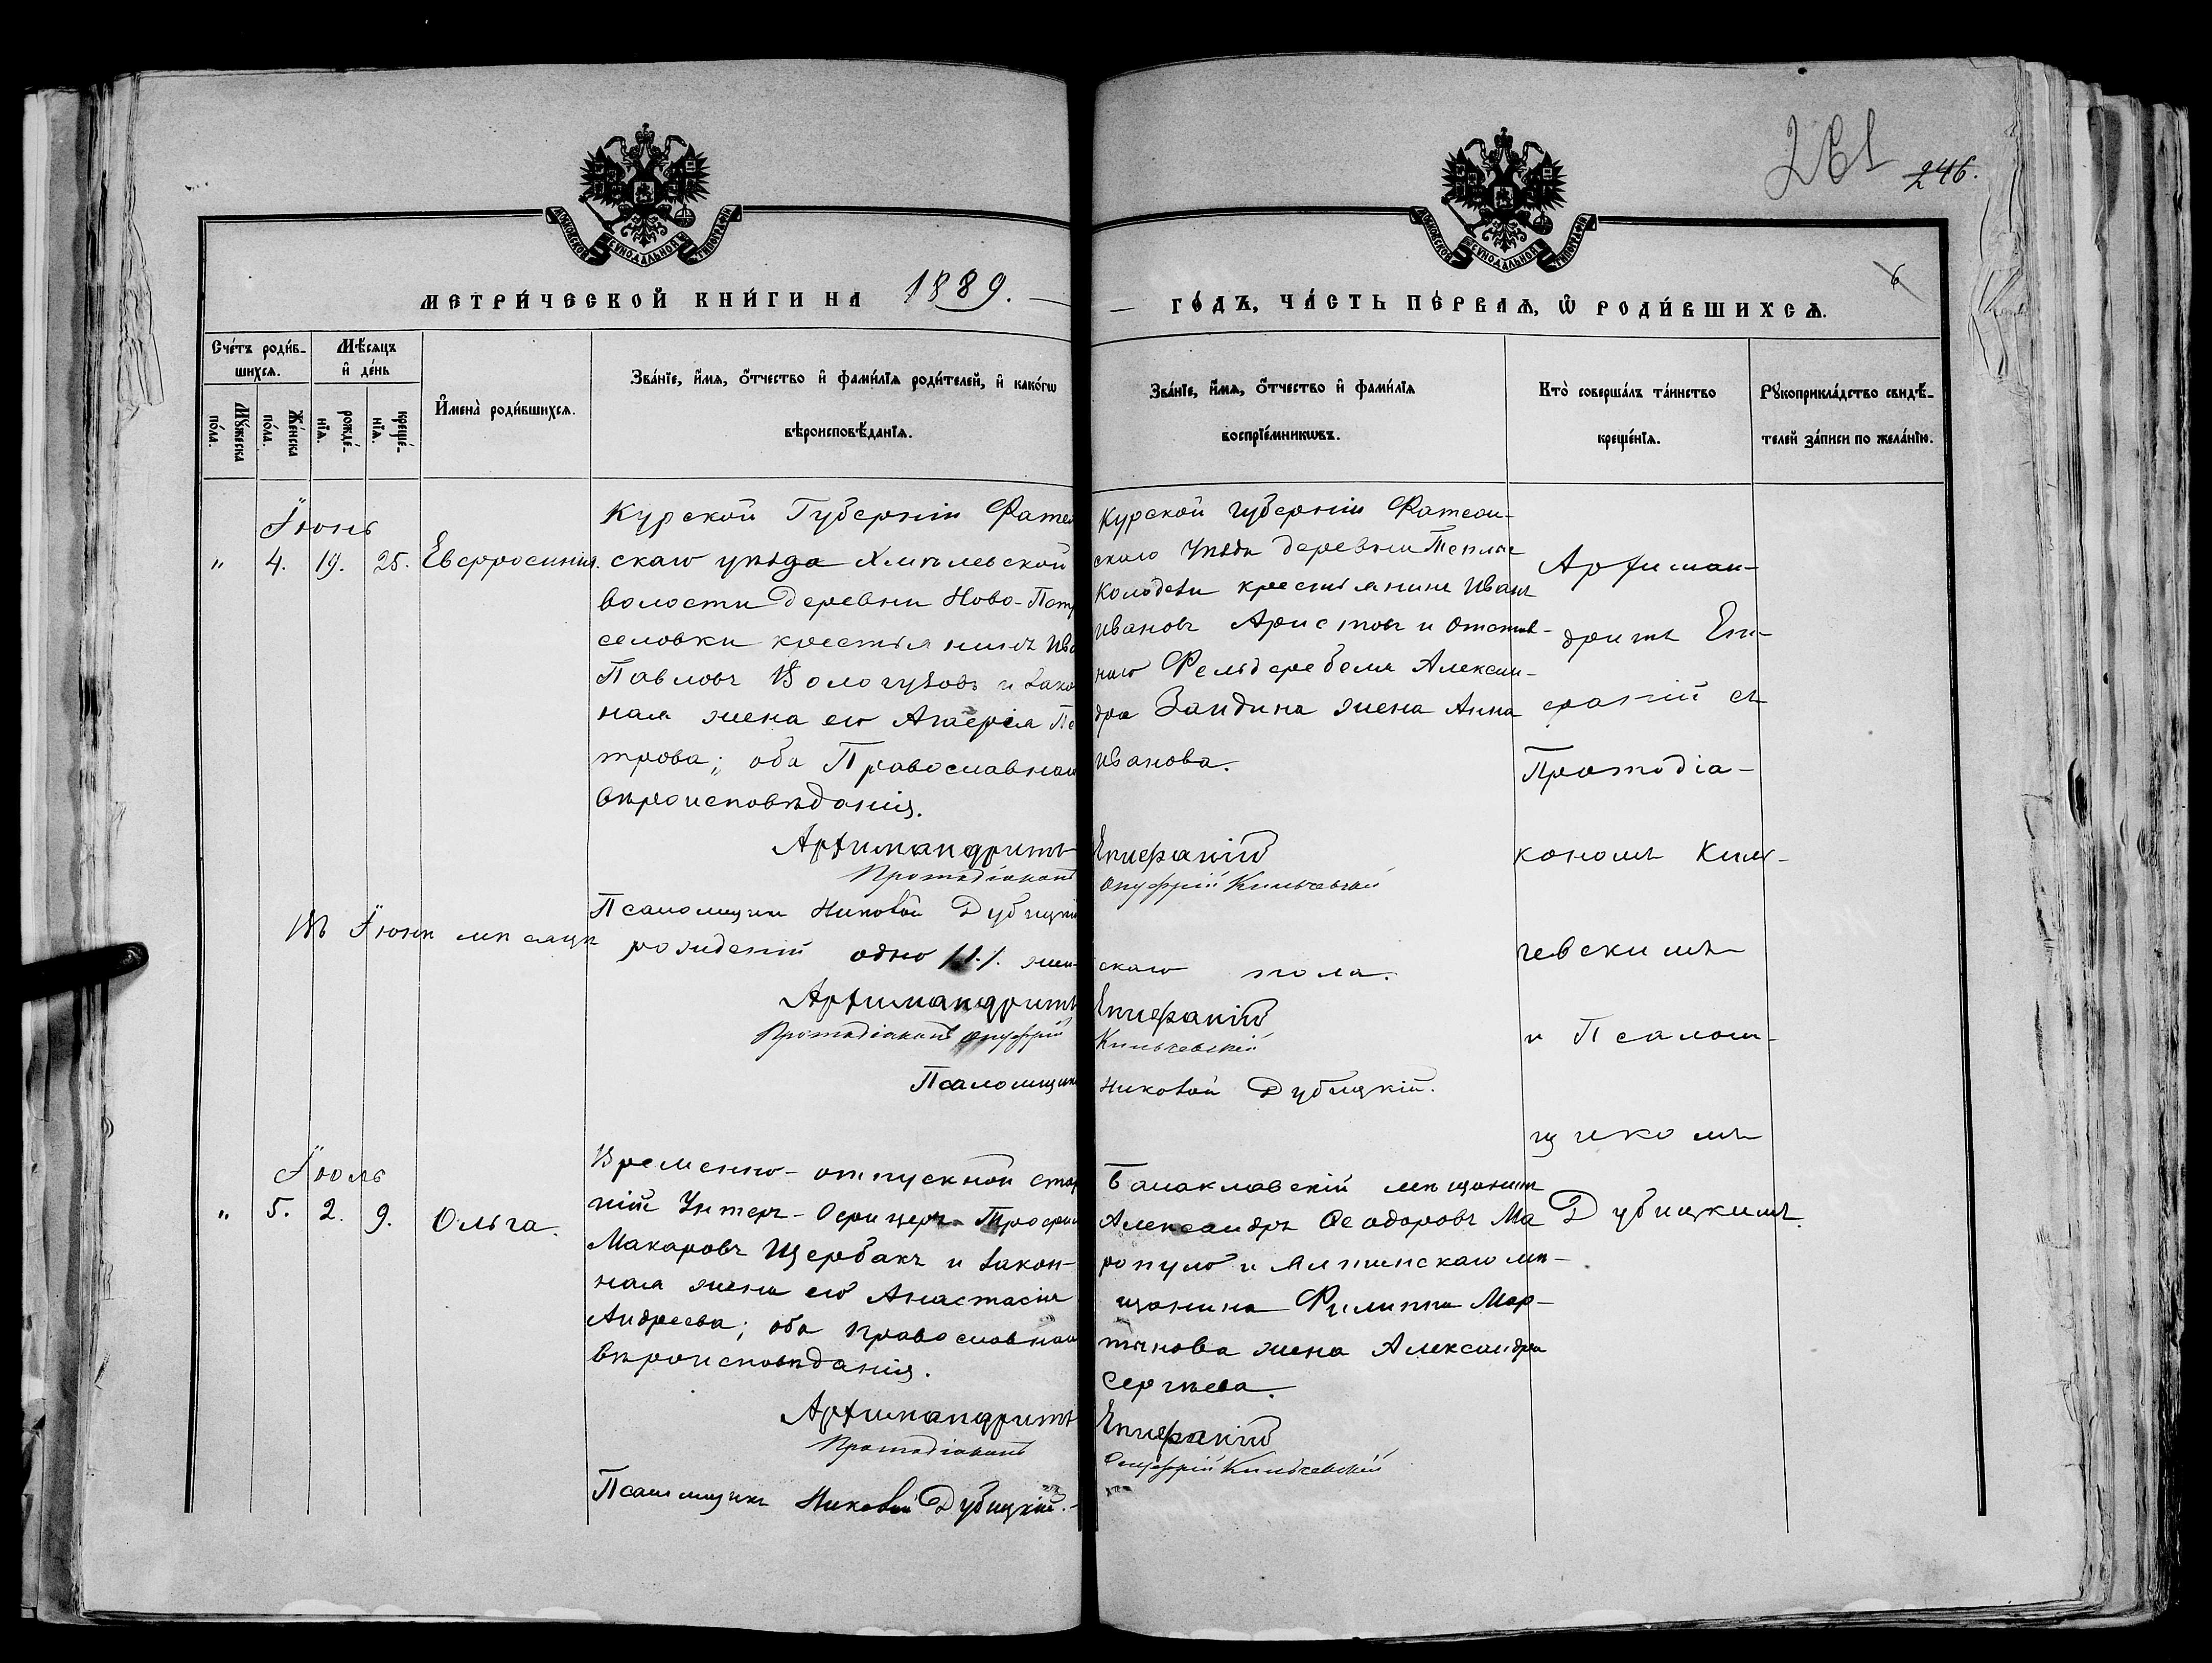 261
246.
МОСКОВСКОЙ СѴНОДАЛЬНОЙ ТИПОГРАФІИ
МОСКОВСКОЙ СѴНОДАЛЬНОЙ ТИПОГРАФІИ
МЕТРИ́ЧЕСКОЙ КНИ́ГИ НА 1889. —
— ГО́ДЪ, ЧА́СТЬ ПЕ́РВАѦ, Ѡ҆ РОДИ́ВШИХСѦ.
6
Сче́тъ роди́в-
шихсѧ.
Мѣ́сѧцъ
и҆ де́нь
Мꙋ́жеска
по́ла.
Же́нска
по́ла.
рожде́-
нїѧ.
креще́-
нїѧ.
И҆мена̀ роди́вшихсѧ.
Зва́нїе, и҆́мѧ, ѻ҆́тчество и҆ фами́лїѧ роди́телей, и҆ како́гѡ
вѣроисповѣ́данїѧ.
Зва́нїе, и҆́мѧ, ѻ҆́тчество и҆ фами́лїѧ
воспрїе́мникѡвъ.
Кто̀ соверша́лъ та́инство
креще́нїѧ.
Рꙋкоприкла́дство свидѣ́-
телей за́писи по жела́нїю.
Іюнь
" 4. 19. 25. Евфросинія.
Курской Губерніи Фатеж
скаго уѣзда Хмѣлевской
волости деревни Ново-Петр
селовки крестьянинъ Ива
Павловъ Вологузовъ и закон
ная жена его Агаѳія Пе
трова; оба Православнаго
вѣроисповѣданія.
Архимандритъ
Протодіаконъ
Псаломщикъ Никовай Дубицкій
Курской губерніи Фатеж-
скаго Уѣзда деревни Теплые
Колодези крестьянинъ Иванъ
Ивановъ Аристовъ и отстав-
наго Фельдфебеля Алексан-
дра Зандина жена Анна
Иванова.
Епифаній
Онуфрій Кильчевскій
Архиман-
дритъ Епи-
фаній съ
Протодіа-
кономъ Киль-
чевскимъ
и Псалом-
щикомъ
Дубицкимъ.
Въ Іюнѣ мѣсяцѣ
рожденій одно /1./ жен-
скаго пола.
Архимандритъ
Епифаній
Протодіаконъ Онуфрій
Кильчевскій
Псаломщикъ
Никовай Дубицкій.
Іюль
" 5. 2. 9. Ольга.
Временно-отпускной стар
шій Унтеръ-Офицеръ Трофим
Макаровъ Щербакъ и закон-
ная жена его Анастасія
Андреева; оба православнаго
вѣроисповѣданія.
Архимандритъ
Протодіаконъ
Псаломщикъ Никовай Дубицкій.
Балаклавскій мѣщанинъ
Александръ Ѳеодоровъ Ма
ропуло и Ялтинскаго мѣ-
щанина Филиппа Мар-
тынова жена Александра
Сергѣева.
Епифаній
Онуфрій Кильчевскій